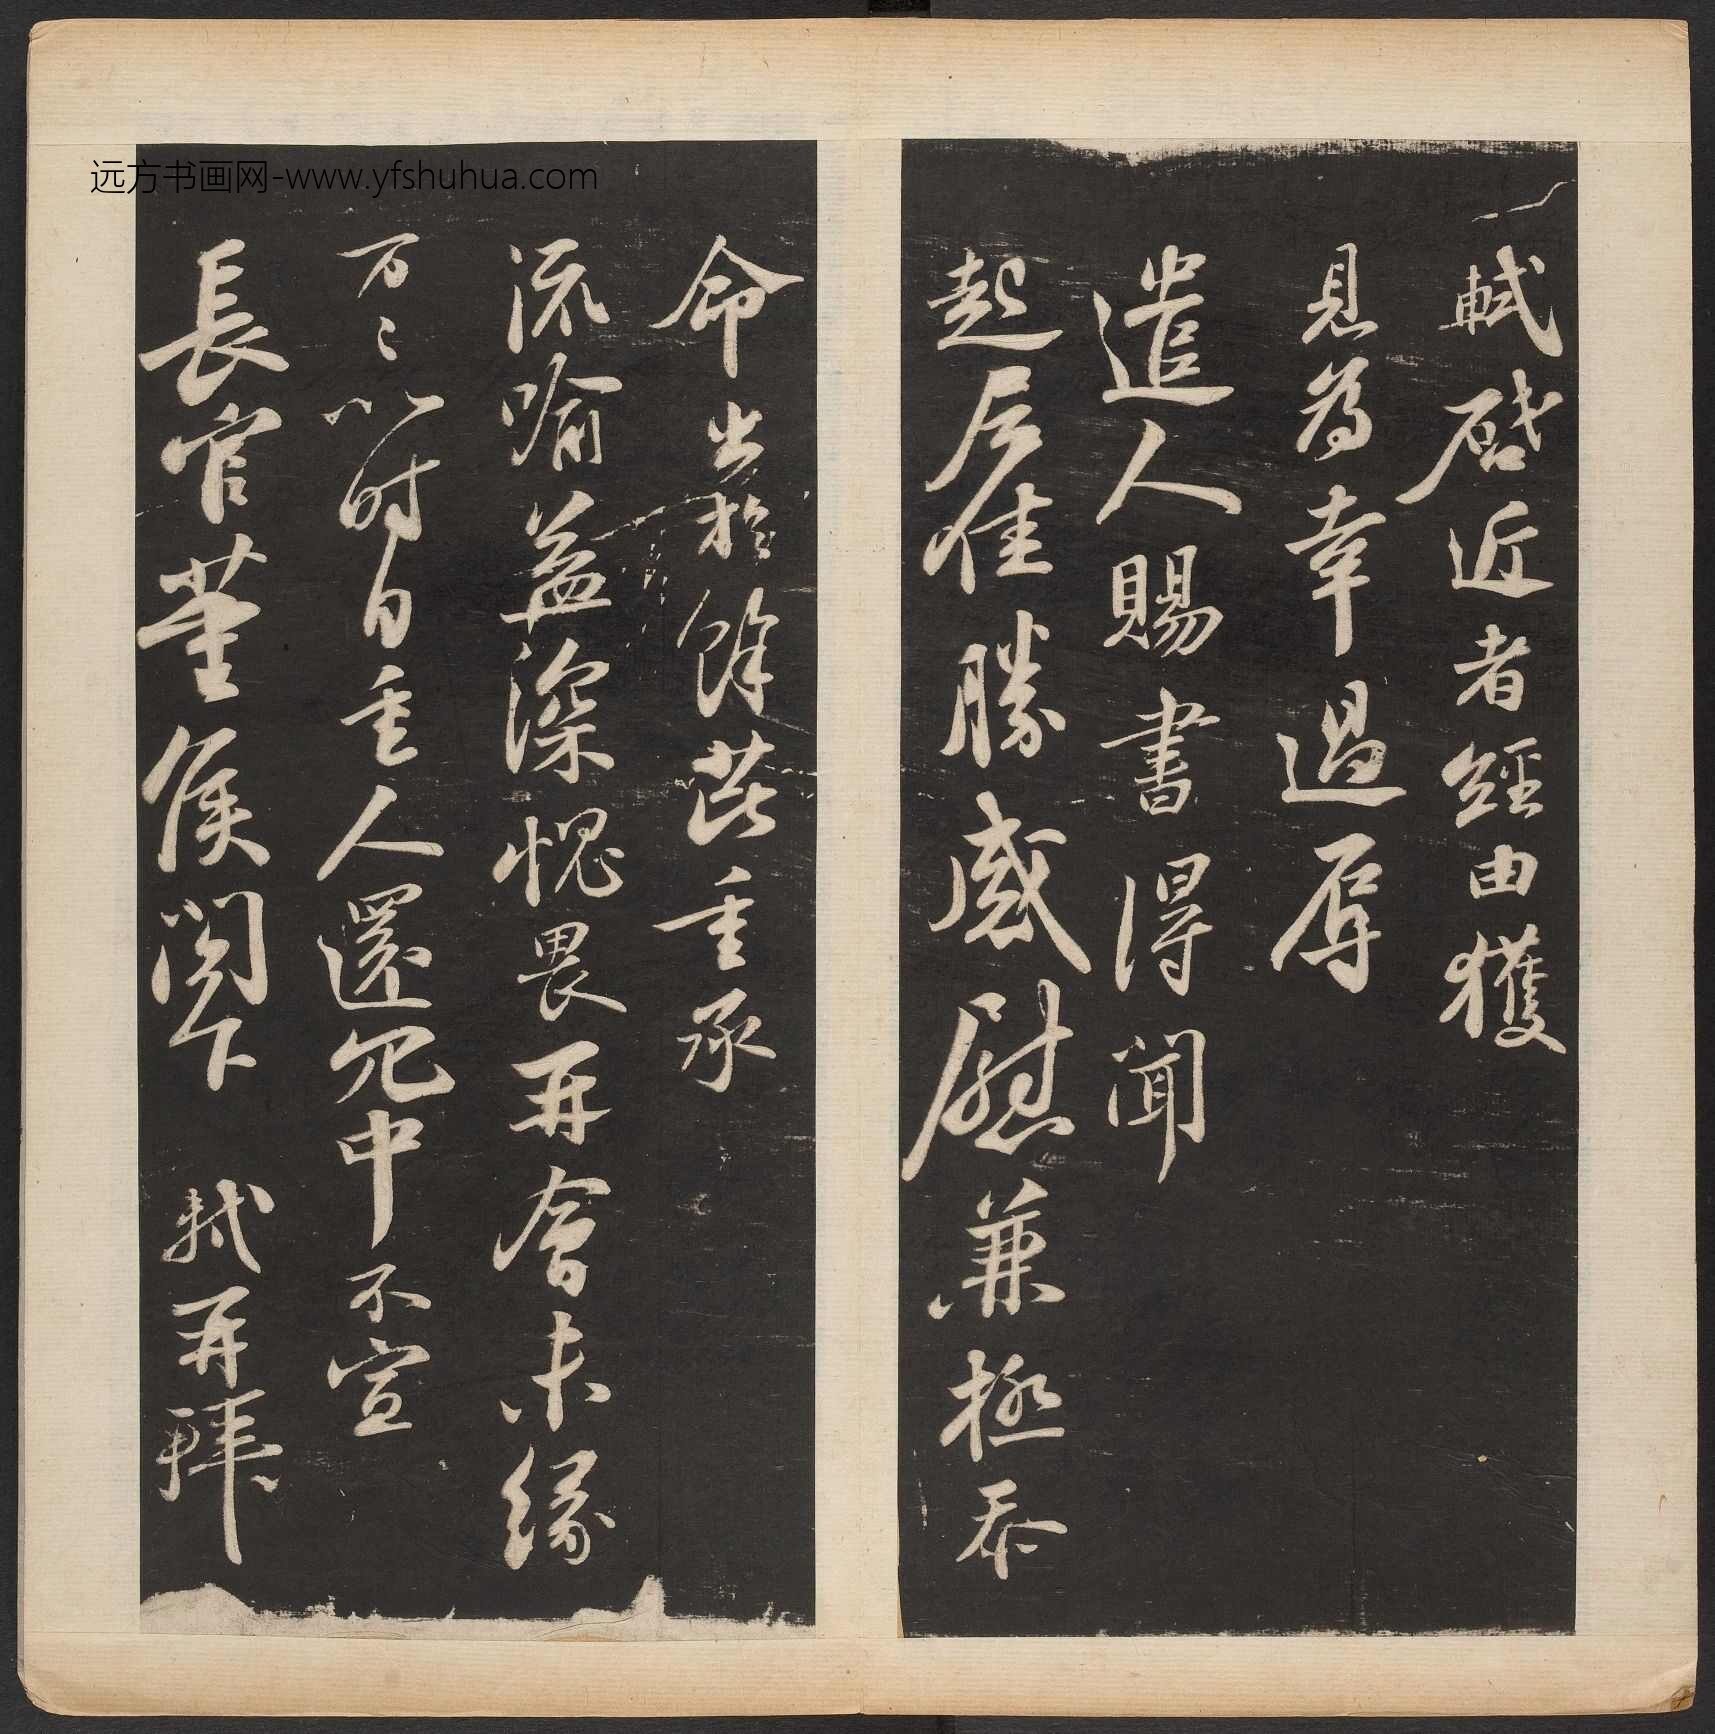 远方书画网-www.yfshuhua.com
軾啟近者經由獲
見為幸過辱
遣人賜書得聞
起居佳勝感慰兼極忝
命出於餘芘重承
流喻益深愧畏再會未緣
万〻以时自重人還冗中不宣
長官董侯閣下 軾再拜